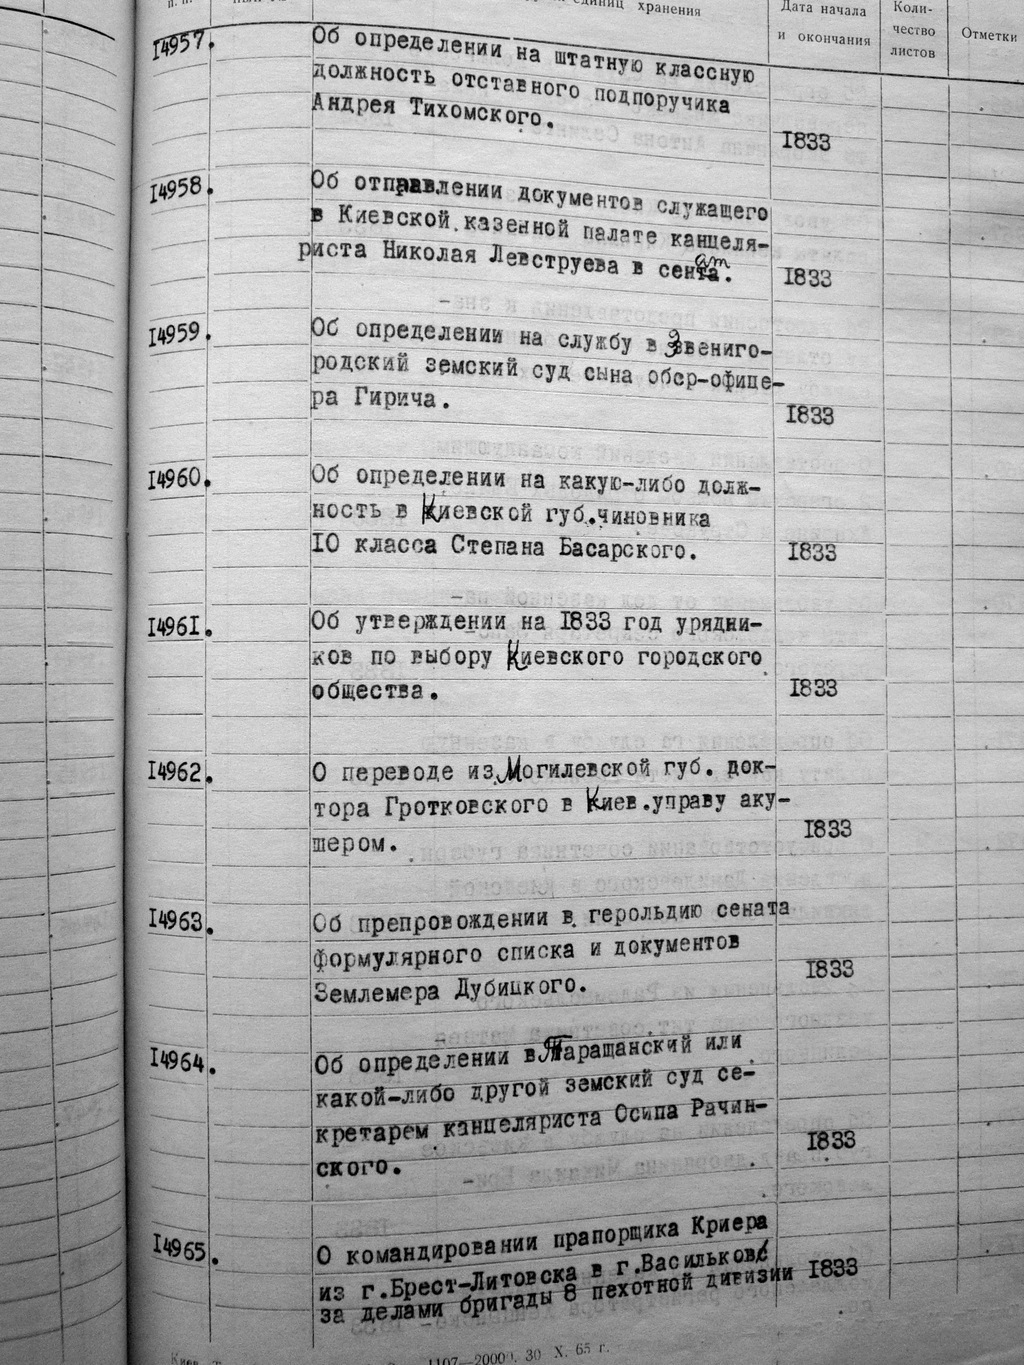 единиц хранения
Дата начала
и окончания
Коли-
чество
листов
Отметки
14957.
Об определении на штатную классную
должность отставного подпоручика
Андрея Тихомского.
1833
14958.
Об отправлении документов служащего
в Киевской казенной палате канцеля-
риста Николая Левструева в сенат.
1833
14959.
Об определении на службу в Звениго-
родский земский суд сына обер-офице-
ра Гирича.
1833
14960.
Об определении на какую-либо долж-
ность в Киевской губ.чиновника
10 класса Степана Басарского.
1833
14961.
Об утверждении на 1833 год урядни-
ков по выбору Киевского городского
общества.
1833
14962.
О переводе из Могилевской губ. док-
тора Гротковского в Киев.управу аку-
шером.
1833
14963.
Об препровождении в герольдию сената
формулярного списка и документов
Землемера Дубицкого.
1833
14964.
Об определении в Таращанский или
какой-либо другой земский суд се-
кретарем канцеляриста Осипа Рачин-
ского.
1833
14965.
О командировании прапорщика Криера
из г.Брест-Литовска в г.Васильков
за делами бригады 8 пехотной дивизии
1833
1107—2000. 30 X. 65 г.